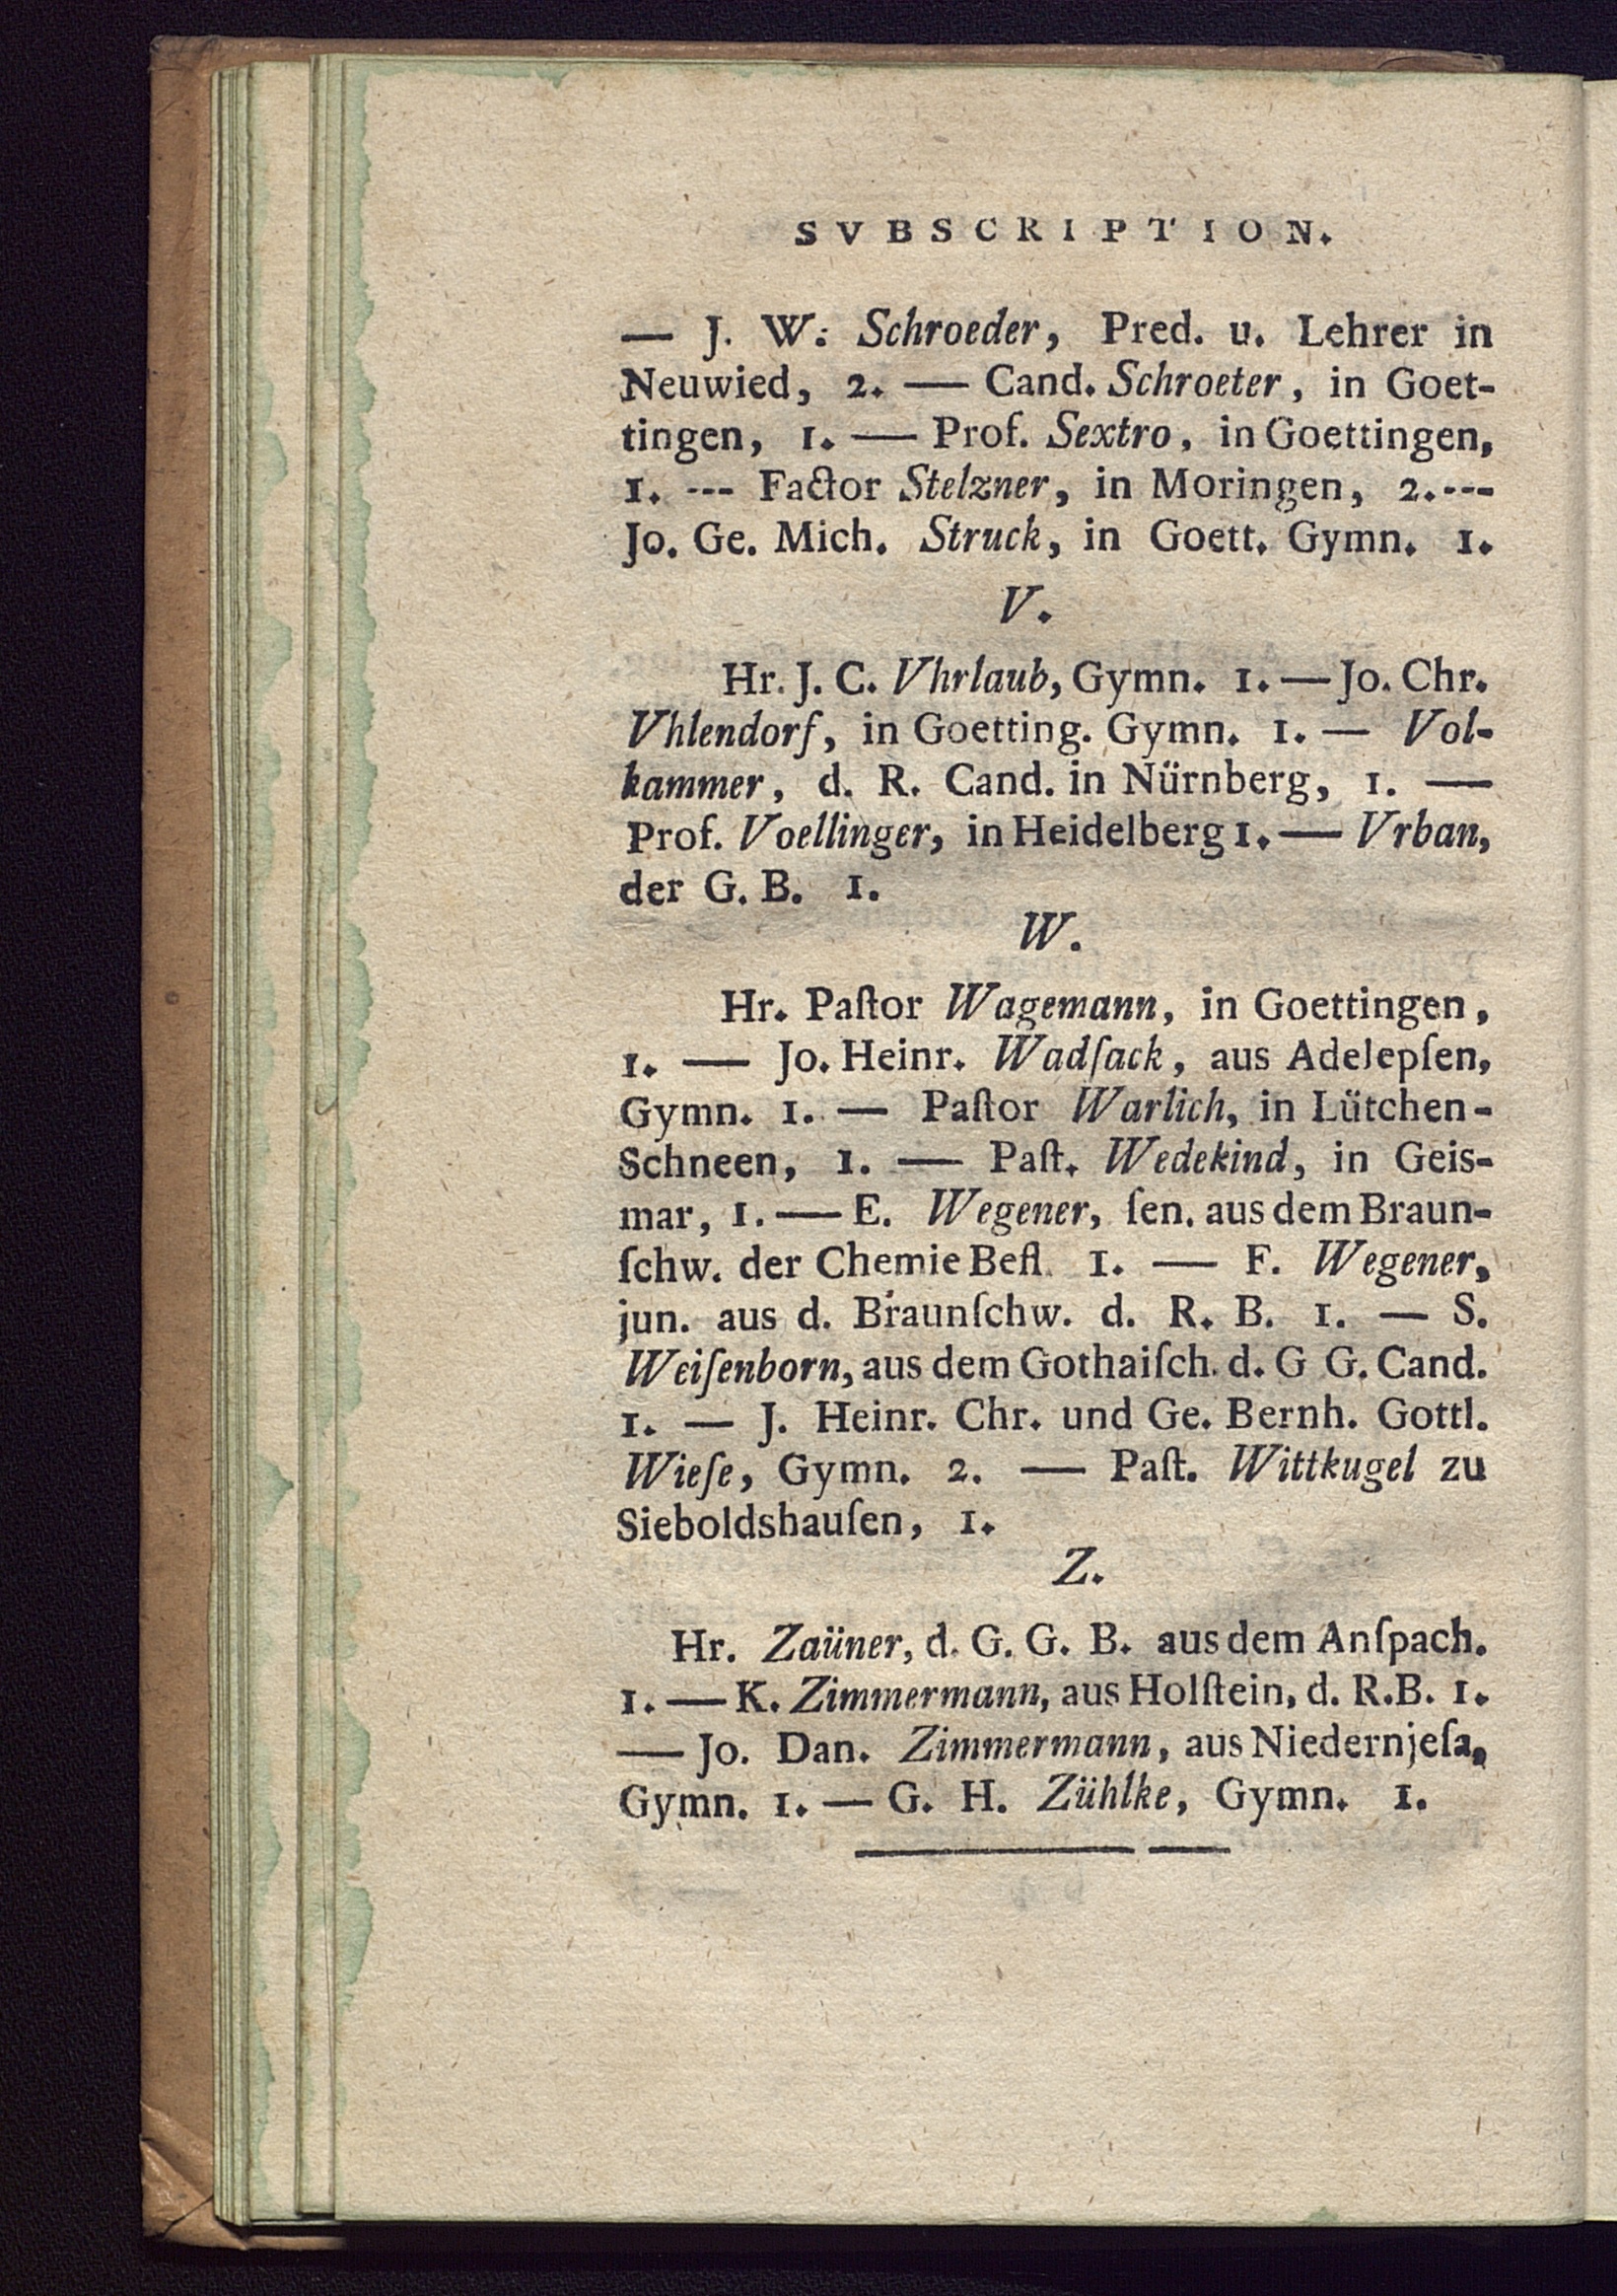 SVBSCRIPTION.
— J. W. Schroeder, Pred. u. Lehrer in
Neuwied, 2. — Cand. Schroeter, in Goet-
tingen, 1. — Prof. Sextro, in Goettingen,
1. --- Factor Stelzner, in Moringen, 2.---
Jo. Ge. Mich. Struck, in Goett. Gymn. 1.
V.
Hr. J. C. Vhrlaub, Gymn. 1. — Jo. Chr.
Vhlendorf, in Goetting. Gymn. 1. — Vol-
kammer, d. R. Cand. in Nürnberg, 1. —
Prof. Voellinger, in Heidelberg 1. — Vrban,
der G. B. 1.
W.
Hr. Paſtor Wagemann, in Goettingen,
1. — Jo. Heinr. Wadſack, aus Adelepſen,
Gymn. 1. — Paſtor Warlich, in Lütchen-
Schneen, 1. — Paſt. Wedekind, in Geis-
mar, 1. — E. Wegener, ſen. aus dem Braun-
ſchw. der Chemie Befl. 1. — F. Wegener,
jun. aus d. Braunſchw. d. R. B. 1. — S.
Weiſenborn, aus dem Gothaiſch. d. G G. Cand.
1. — J. Heinr. Chr. und Ge. Bernh. Gottl.
Wieſe, Gymn. 2. — Paſt. Wittkugel zu
Sieboldshauſen, 1.
Z.
Hr. Zaüner, d. G. G. B. aus dem Anſpach.
1. — K. Zimmermann, aus Holſtein, d. R.B. 1.
— Jo. Dan. Zimmermann, aus Niedernjeſa,
Gymn. 1. — G. H. Zühlke, Gymn. 1.